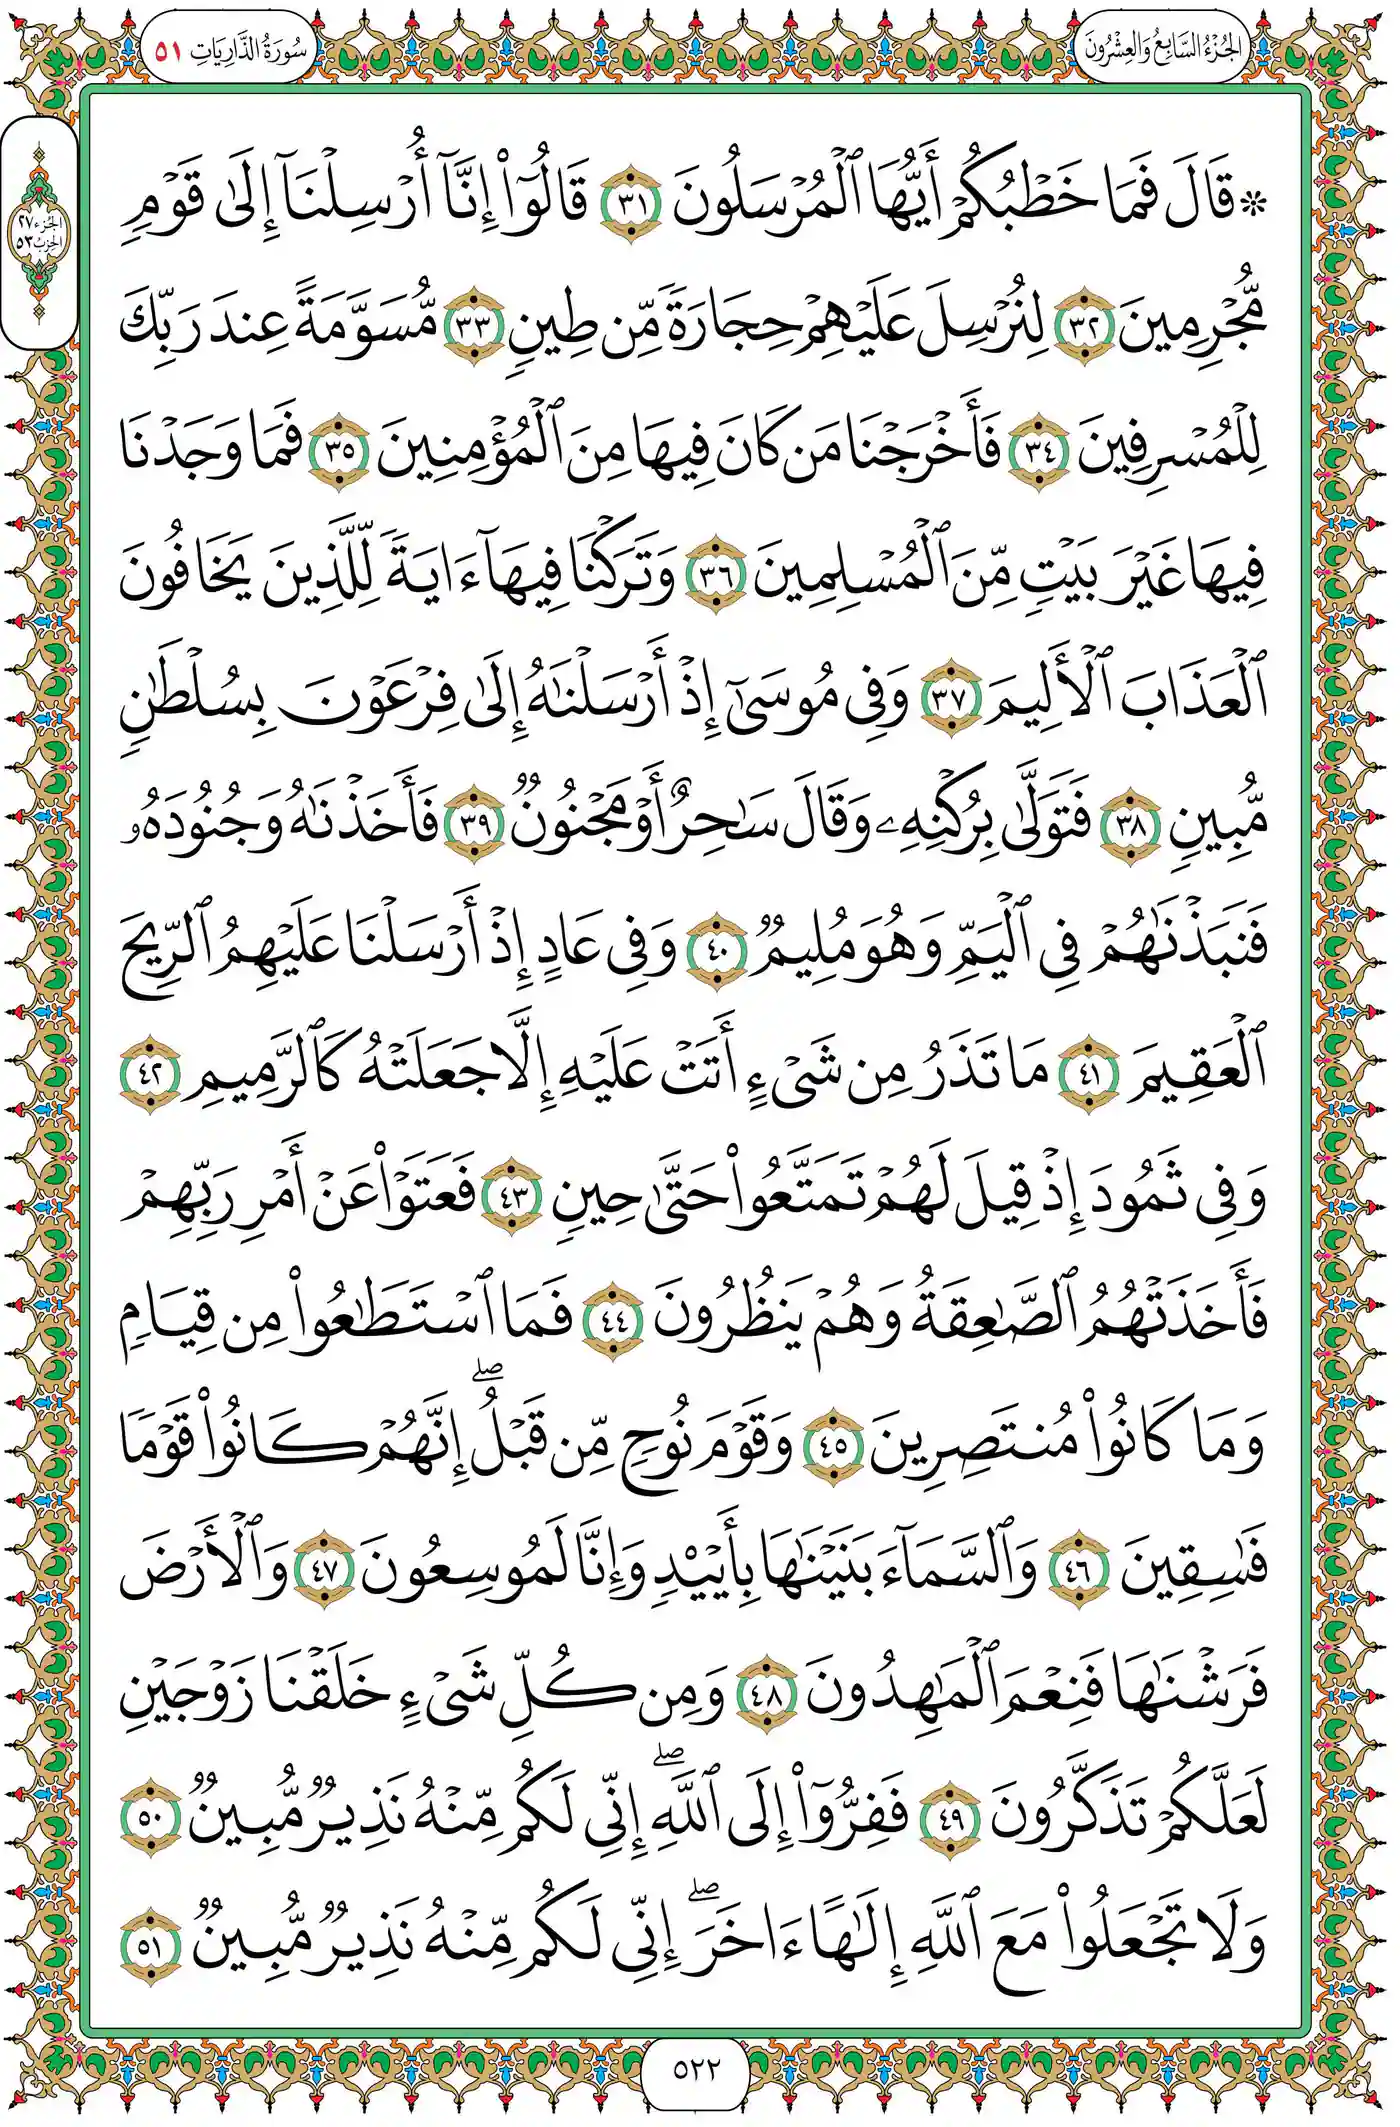 الجُزْءُ السَّابِعُ وَالعِشْرُونَ
سُورَةُ الذَّارِيَاتِ ٥١
الجزء ٢٧
الحزب ٥٣
۞ قَالَ فَمَا خَطْبُكُمْ أَيُّهَا ٱلْمُرْسَلُونَ ٣١ قَالُوٓا۟ إِنَّآ أُرْسِلْنَآ إِلَىٰ قَوْمٍ
مُّجْرِمِينَ ٣٢ لِنُرْسِلَ عَلَيْهِمْ حِجَارَةً مِّن طِينٍ ٣٣ مُّسَوَّمَةً عِندَ رَبِّكَ
لِلْمُسْرِفِينَ ٣٤ فَأَخْرَجْنَا مَن كَانَ فِيهَا مِنَ ٱلْمُؤْمِنِينَ ٣٥ فَمَا وَجَدْنَا
فِيهَا غَيْرَ بَيْتٍ مِّنَ ٱلْمُسْلِمِينَ ٣٦ وَتَرَكْنَا فِيهَآ ءَايَةً لِّلَّذِينَ يَخَافُونَ
ٱلْعَذَابَ ٱلْأَلِيمَ ٣٧ وَفِى مُوسَىٰٓ إِذْ أَرْسَلْنَٰهُ إِلَىٰ فِرْعَوْنَ بِسُلْطَٰنٍ
مُّبِينٍ ٣٨ فَتَوَلَّىٰ بِرُكْنِهِۦ وَقَالَ سَٰحِرٌ أَوْ مَجْنُونٌ ٣٩ فَأَخَذْنَٰهُ وَجُنُودَهُۥ
فَنَبَذْنَٰهُمْ فِى ٱلْيَمِّ وَهُوَ مُلِيمٌ ٤٠ وَفِى عَادٍ إِذْ أَرْسَلْنَا عَلَيْهِمُ ٱلرِّيحَ
ٱلْعَقِيمَ ٤١ مَا تَذَرُ مِن شَىْءٍ أَتَتْ عَلَيْهِ إِلَّا جَعَلَتْهُ كَٱلرَّمِيمِ ٤٢
وَفِى ثَمُودَ إِذْ قِيلَ لَهُمْ تَمَتَّعُوا۟ حَتَّىٰ حِينٍ ٤٣ فَعَتَوْا۟ عَنْ أَمْرِ رَبِّهِمْ
فَأَخَذَتْهُمُ ٱلصَّٰعِقَةُ وَهُمْ يَنظُرُونَ ٤٤ فَمَا ٱسْتَطَٰعُوا۟ مِن قِيَامٍ
وَمَا كَانُوا۟ مُنتَصِرِينَ ٤٥ وَقَوْمَ نُوحٍ مِّن قَبْلُ ۖ إِنَّهُمْ كَانُوا۟ قَوْمًا
فَٰسِقِينَ ٤٦ وَٱلسَّمَآءَ بَنَيْنَٰهَا بِأَيْي۟دٍ وَإِنَّا لَمُوسِعُونَ ٤٧ وَٱلْأَرْضَ
فَرَشْنَٰهَا فَنِعْمَ ٱلْمَٰهِدُونَ ٤٨ وَمِن كُلِّ شَىْءٍ خَلَقْنَا زَوْجَيْنِ
لَعَلَّكُمْ تَذَكَّرُونَ ٤٩ فَفِرُّوٓا۟ إِلَى ٱللَّهِ ۖ إِنِّى لَكُم مِّنْهُ نَذِيرٌ مُّبِينٌ ٥٠
وَلَا تَجْعَلُوا۟ مَعَ ٱللَّهِ إِلَٰهًا ءَاخَرَ ۖ إِنِّى لَكُم مِّنْهُ نَذِيرٌ مُّبِينٌ ٥١
٥٢٢